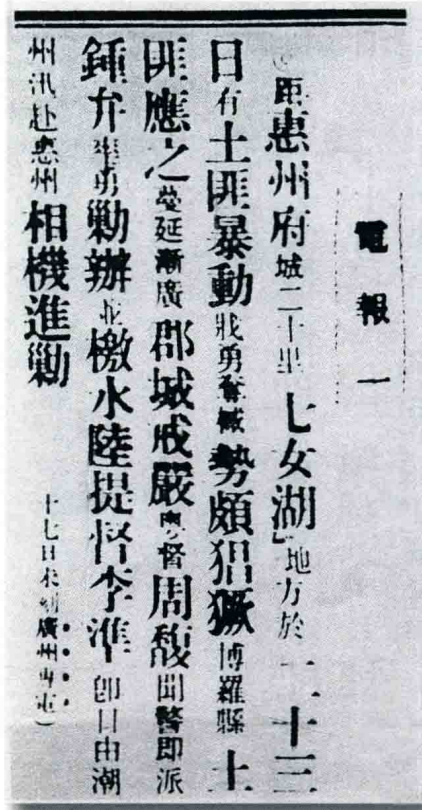 電報一
距惠州府城二十里七女湖」地方於二十三
日有土匪暴動戕勇奪械勢頗猖獗博羅縣土
匪應之蔓延漸廣郡城戒嚴粵督周馥聞警即派
鍾弁率勇勦辦並檄水陸提督李準即日由潮
州汛赴惠州相機進勦 十七日未刻廣州專電)